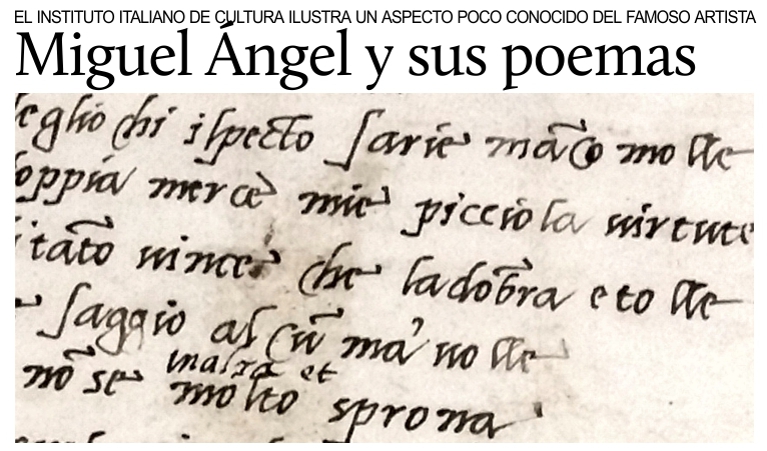 EL INSTITUTO ITALIANO DE CULTURA ILUSTRA UN ASPECTO POCO CONOCIDO DEL FAMOSO ARTISTA
Miguel Ángel y sus poemas
eglio chi ispecto sarie mãco molle
oppia mercè mie picciola uirtute
itãto uince che ladõbra e to lle
saggio alcũ ma' uolle
inalza et
nõ se molto sprona